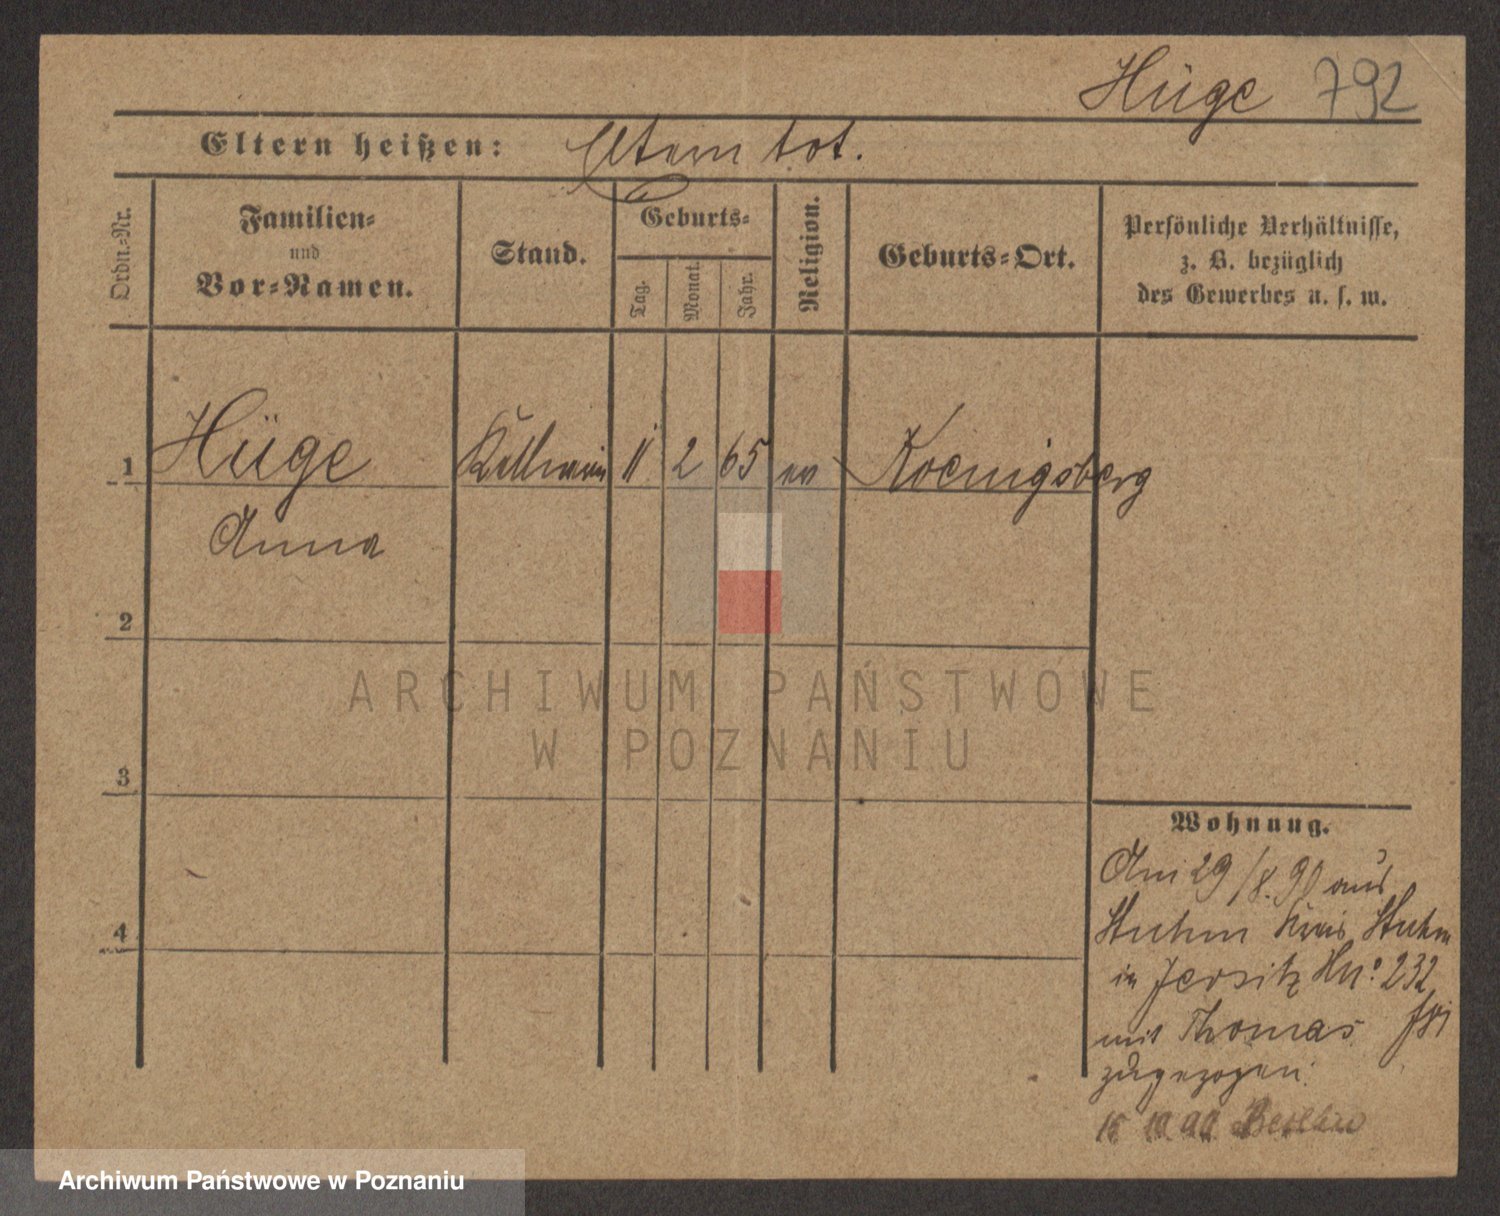 Hüge 792
Eltern heißen: Eltern tot.
Ordn.-Nr.
Familien-
und
Vor-Namen.
Stand.
Geburts-
Tag.
Monat.
Jahr.
Religion.
Geburts-Ort.
Persönliche Verhältnisse,
z. B. bezüglich
des Gewerbes u. s. w.
1 Hüge Kellnerin 11 2 65 ev Koenigsberg
Anna
2
3
4
ARCHIWUM PAŃSTWOWE
W POZNANIU
Wohnung.
Am 29/8.90 aus
Stuhm Kreis Stuhm
in Jersitz No: 232
mit Thomas
zugezogen.
Archiwum Państwowe w Poznaniu